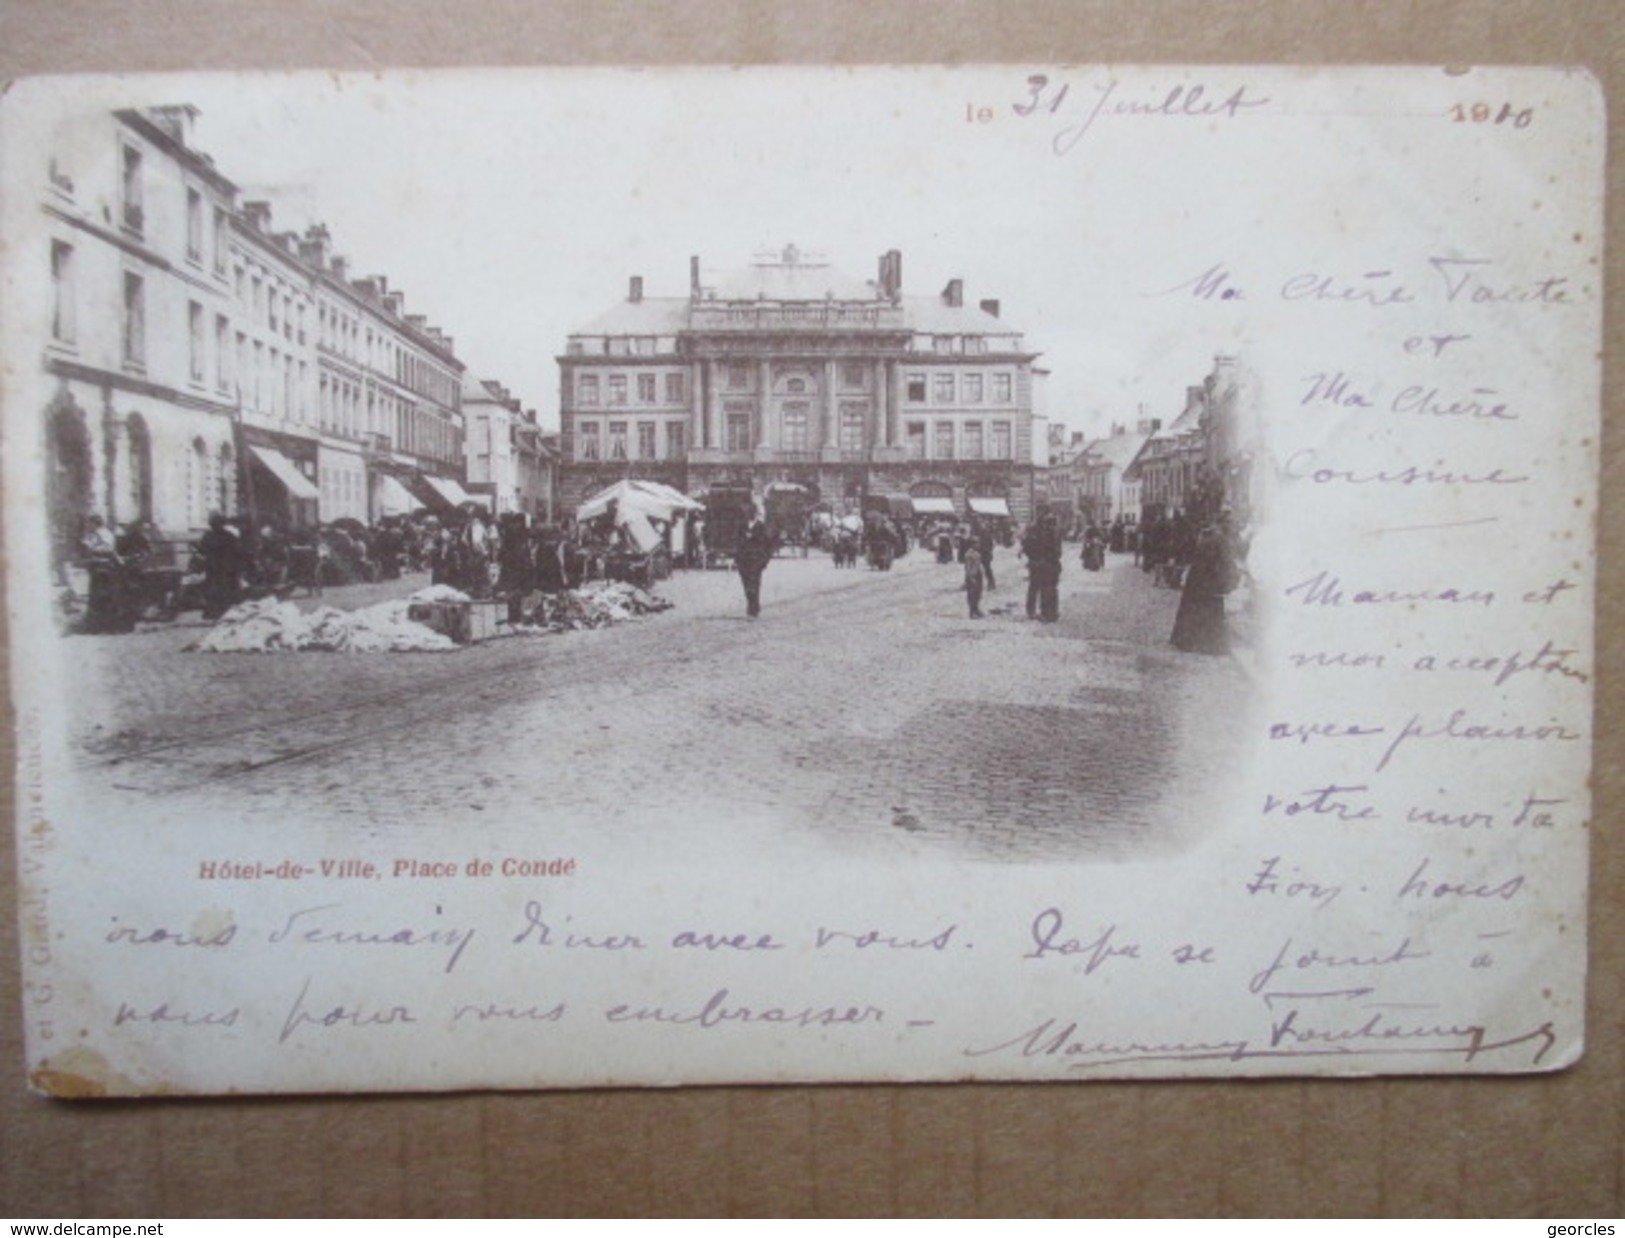 le 31 Juillet 1910
Ma Chère Tante
et
Ma Chère
Cousine
Maman et
moi acceptons
avec plaisir
votre invita
tion. nous
irons demain diner avec vous. Papa se joint à
nous pour vous embrasser -
Fontaine
Hôtel-de-Ville, Place de Condé
et G. Valenciennes.
www.delcampe.net
georcles